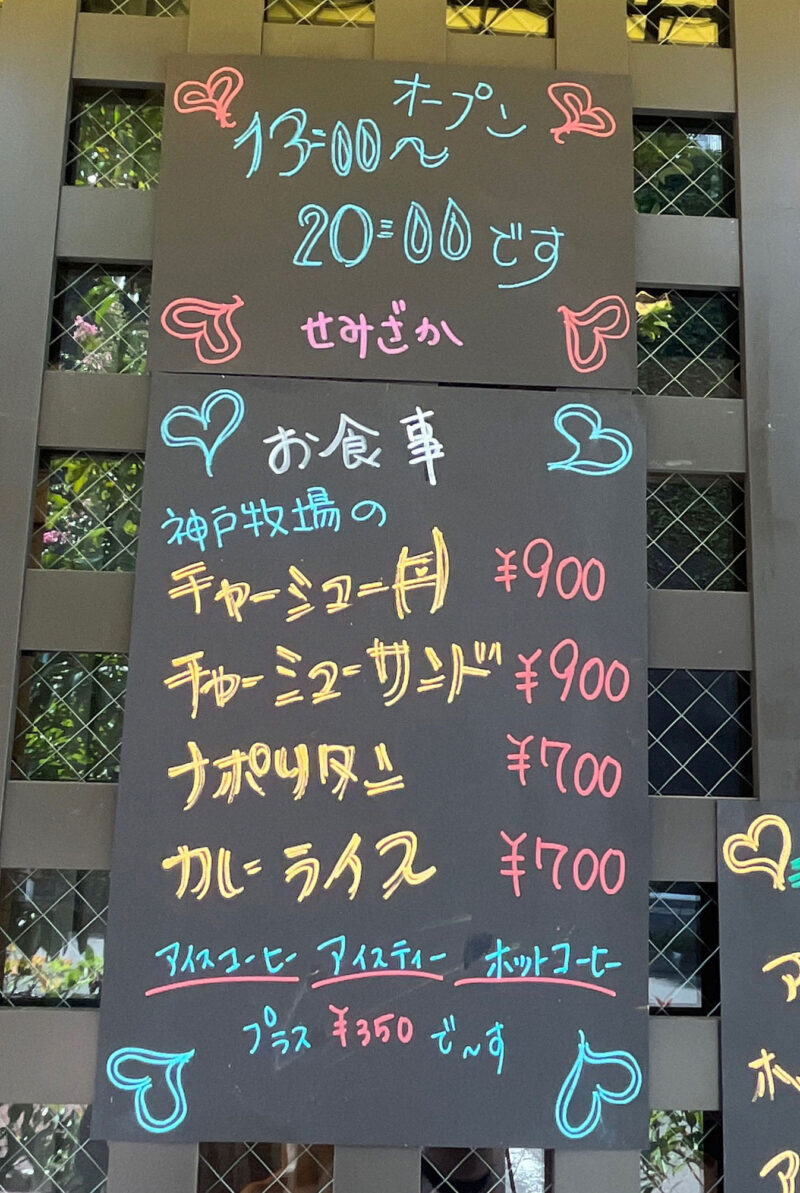 オープン
13:00〜
20:00です
せみざか
お食事
神戸牧場の
チャーシュー丼 ¥900
チャーシューサンド ¥900
ナポリタン ¥700
カレーライス ¥700
アイスコーヒー アイスティー ホットコーヒー
プラス ¥350 で〜す
ア
ホッ
ア